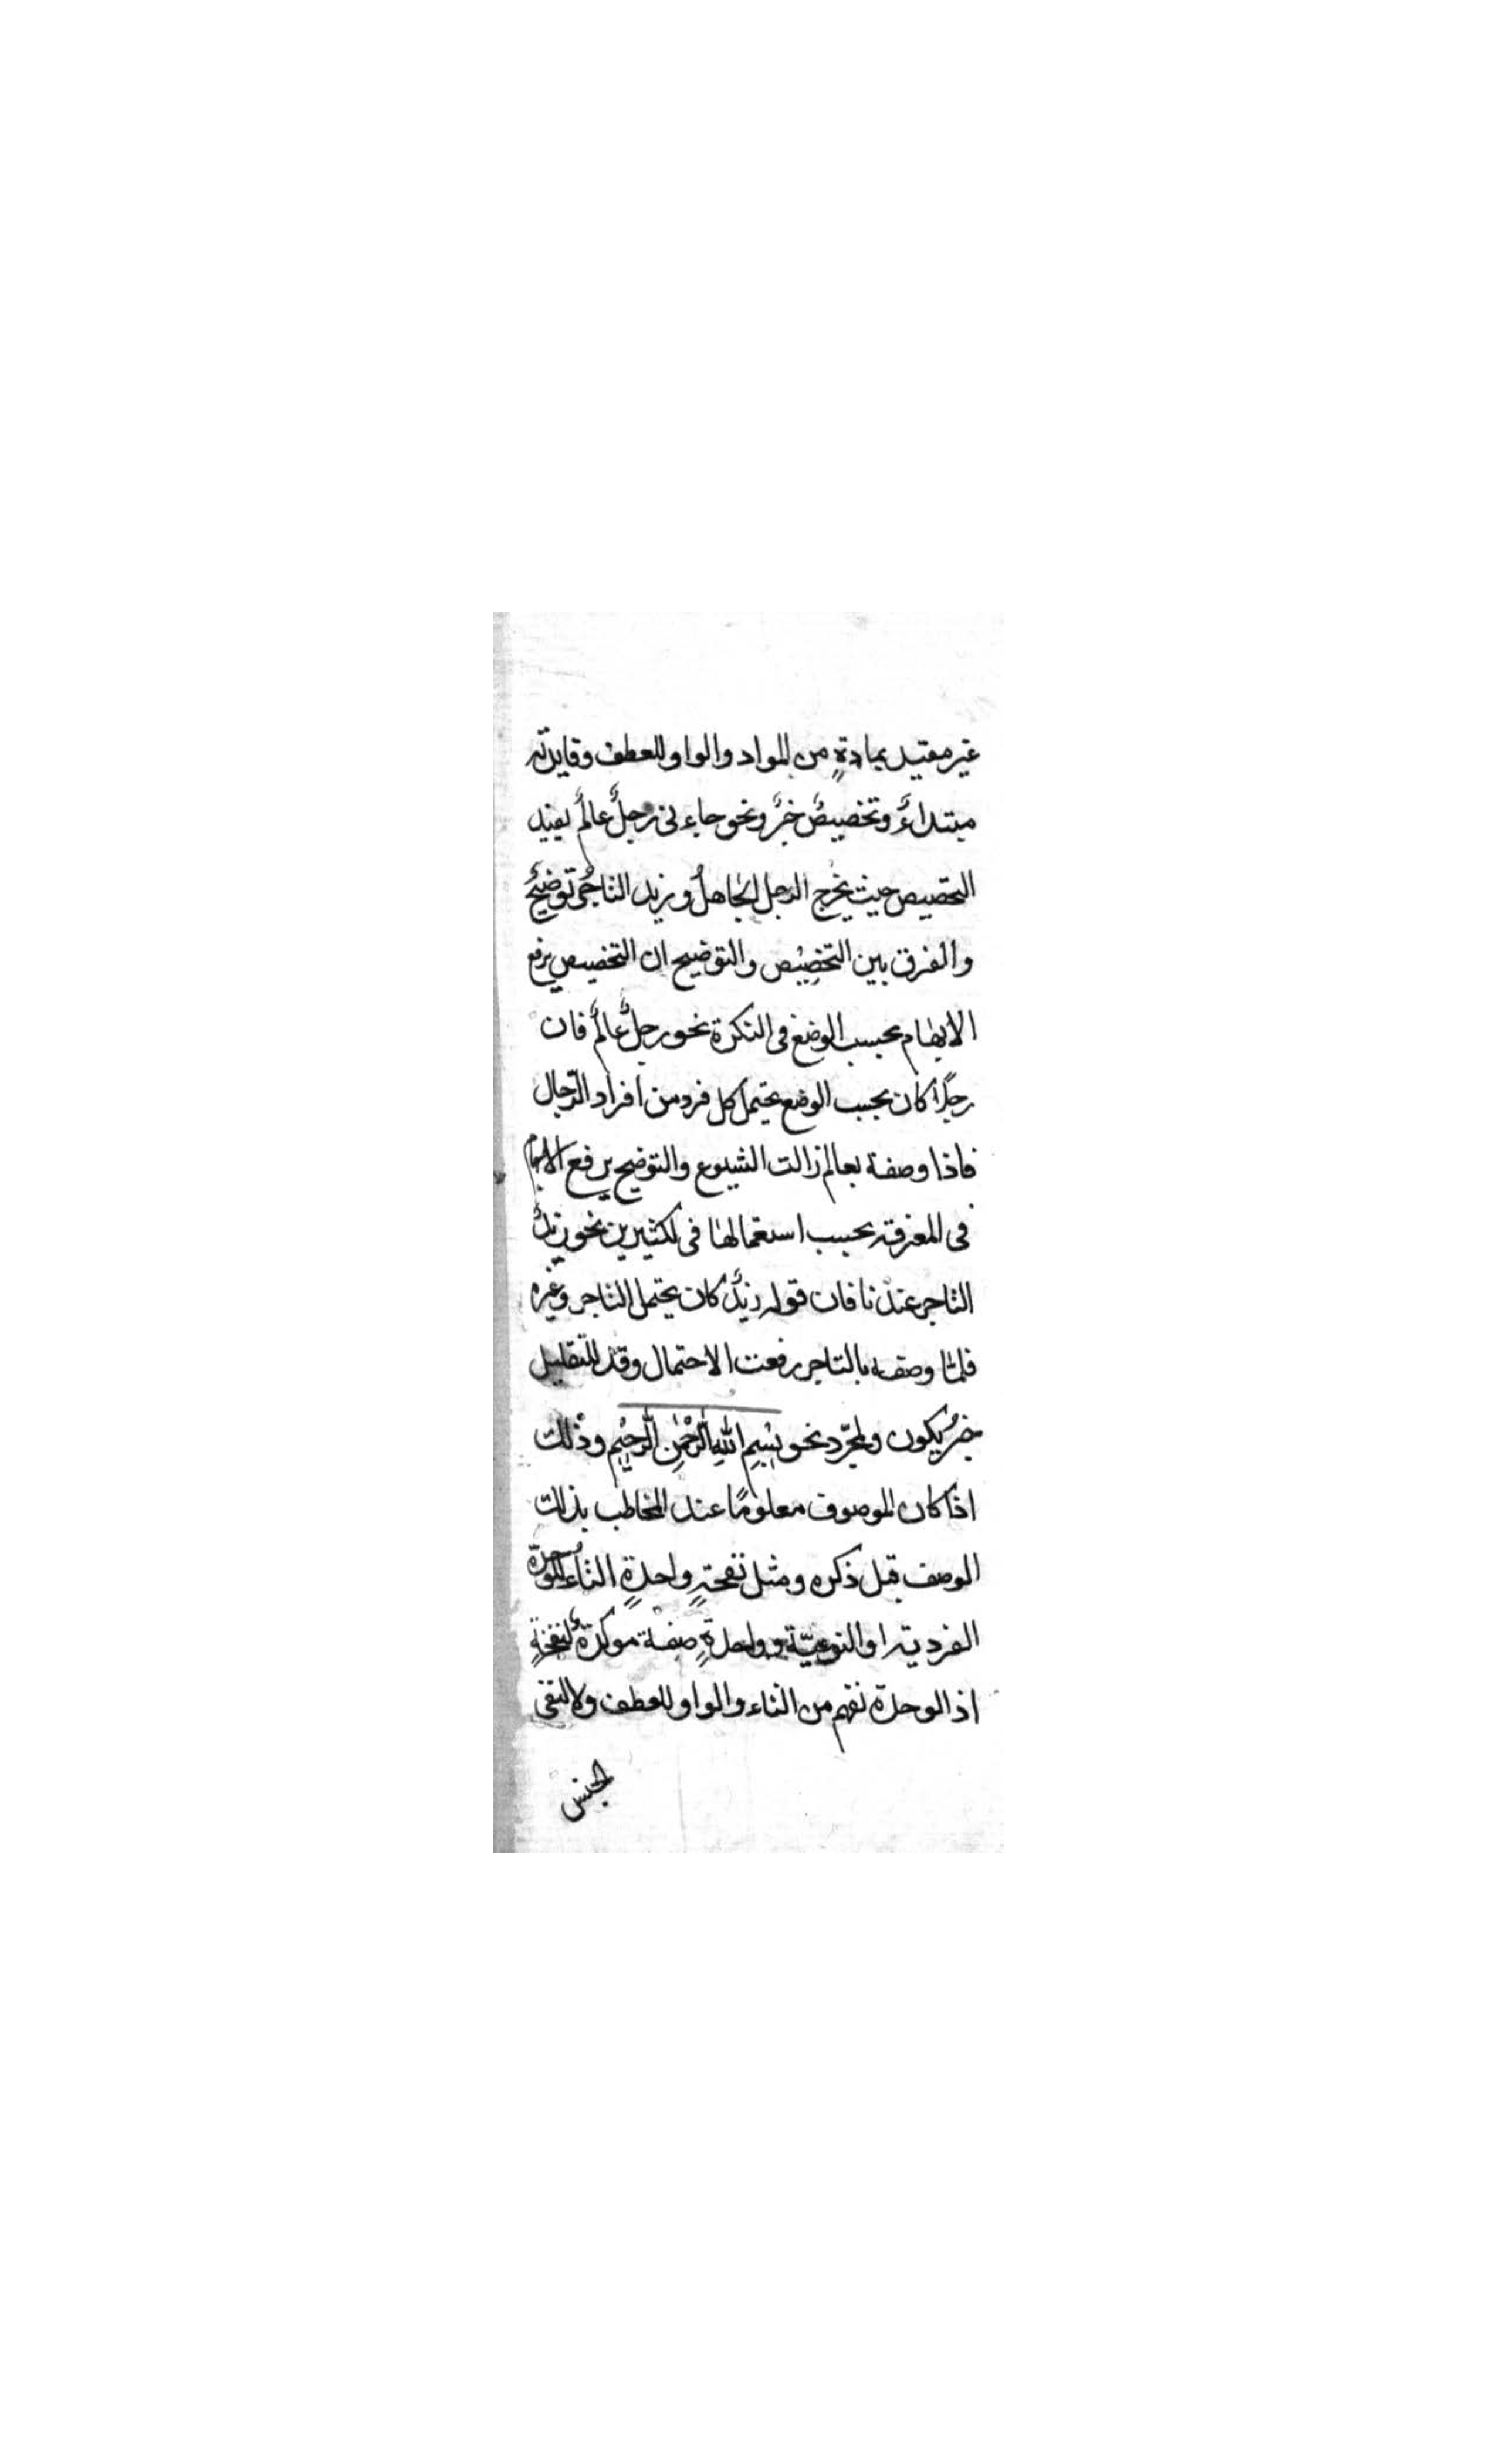 غير مقيد بمادةٍ من المواد والواو للعطف وفايدته
مبتداءٌ وتخصيصٌ خبرٌ ونحو جاءنى رجلٌ عالمٌ يفيد
التخصيص حيث يخرج الرجل الجاهلُ وزيد التاجُر توضيحٌ
والفرق بين التخصِيْص والتوضيح ان التخصيص يرفع
الابهام بحسب الوضع فى النكرة نحو رجلٌ عالمٌ فان
رجلًا كان بحسب الوضع يحتمل كل فرد من افراد الرّجال
فاذا وصفة بعالم زالت الشيوع والتوضيح يرفع الابهام
فى المعرفته بحسب استعمالها فى لكثيرين نحو زيدٌ
التاجر عندنا فان قوله زيدٌ كان يحتمل التاجر وغيره
فلمّا وصفه بالتاجر رفعت الاحتمال وقد للتقليل
خبرُ يكون ولمجرّد نحو بِسْمِ اللهِ الرَّحْمٰنِ الرَّحِيْمِ وذٰلك
اذا كان الموصوف معلومًا عند المخاطب بذلك
الوصف قبل ذكره ومثل نفخةٍ واحدةٍ التاءُ للوحدة
الفرديته او النوعيّة وواحدةٍ صِفة موكدةٌ لنفخةٍ
اذ الوحدة تفهم من التاء والواو للعطف ولا لنفى
لجنس